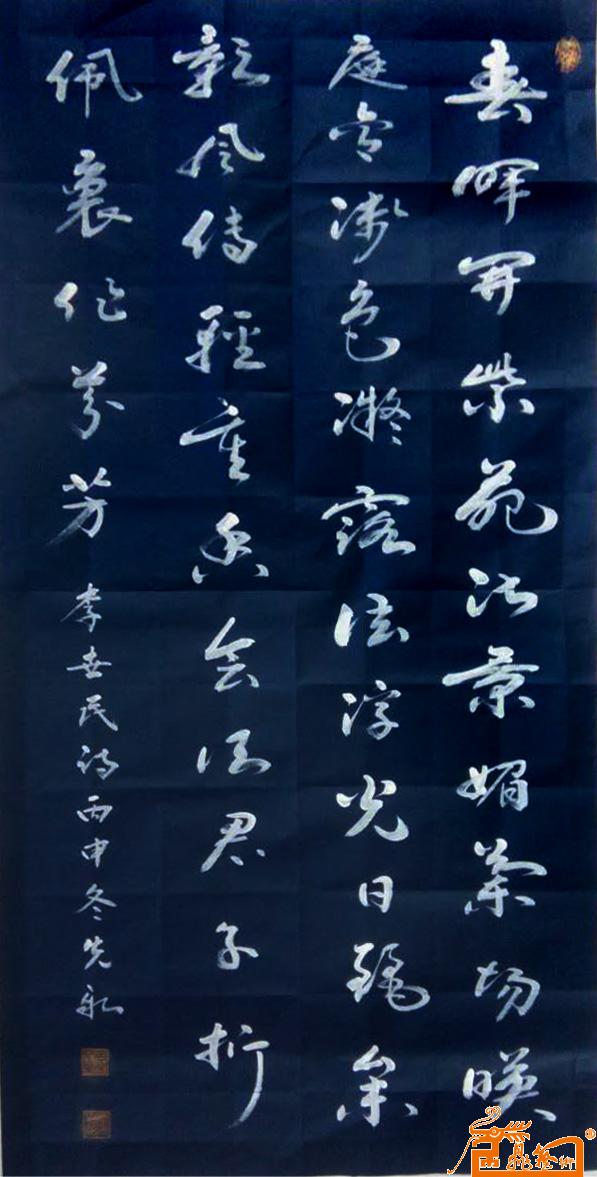 春暉開紫苑淑景媚蘭場映
庭含淺色凝露泫浮光日麗參
影風傳輕重香會須君子折
佩裏作芬芳 李世民詩丙申冬先永